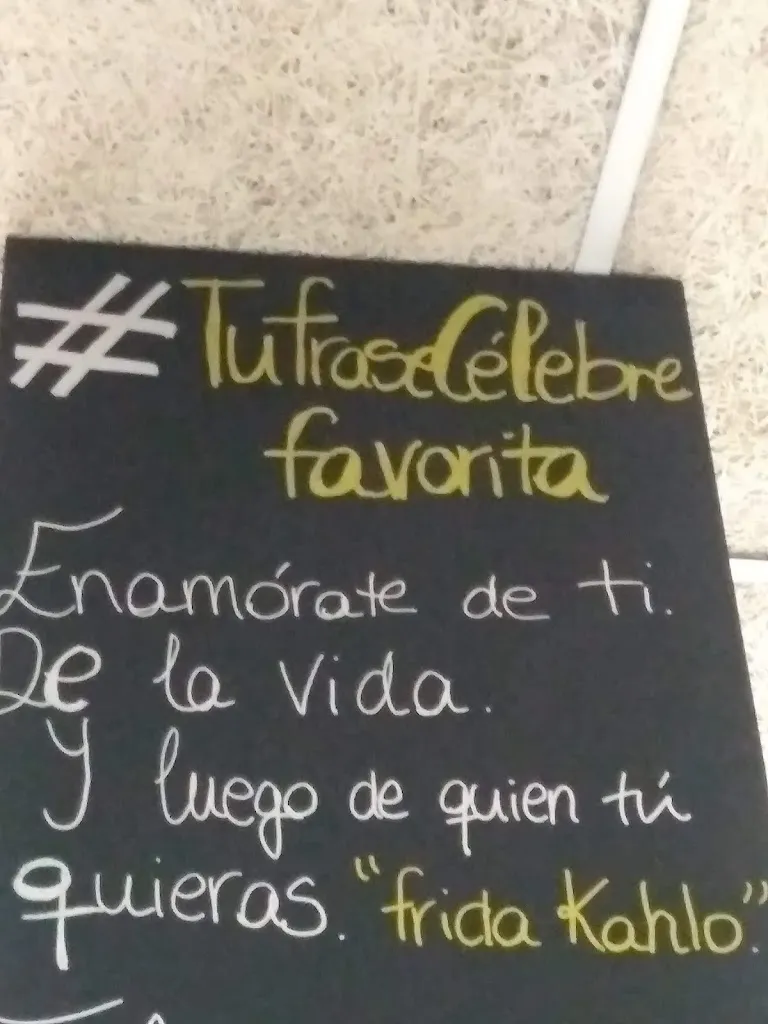 #TufraseCélebre
favorita
Enamórate de ti.
De la vida.
Y luego de quien tú
quieras. "frida Kahlo".